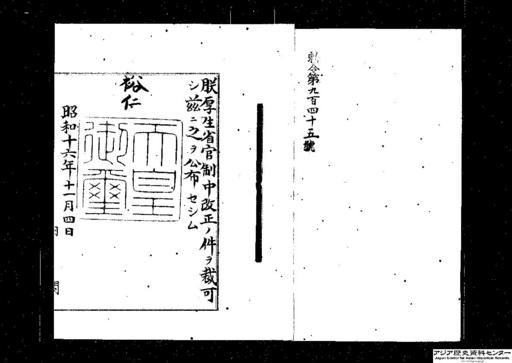 勅令第九百四十五號
朕厚生省官制中改正ノ件ヲ裁可
シ茲ニ之ヲ公布セシム
裕仁
天皇
御璽
昭和十六年十一月四日
アジア歴史資料センター
Japan Center for Asian Historical Records